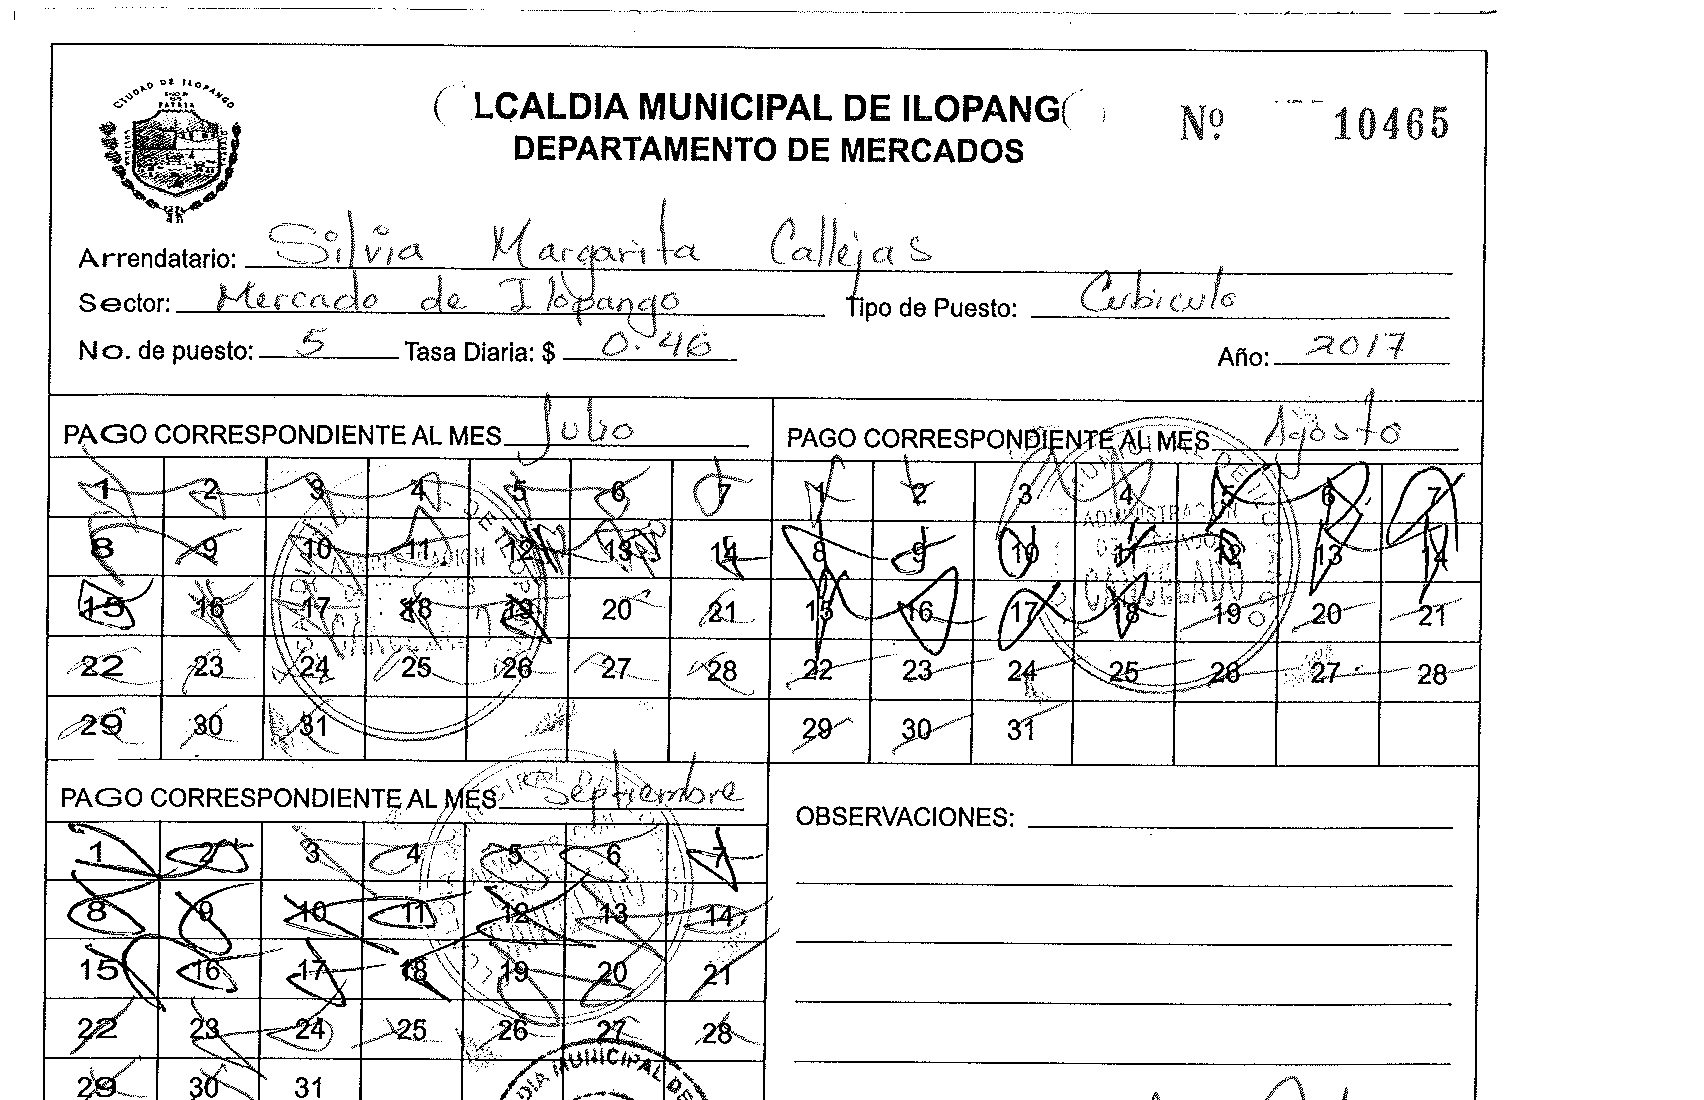 CIUDAD DE ILOPANGO
PATRIA
LCALDIA MUNICIPAL DE ILOPANG
Nº 10465
DEPARTAMENTO DE MERCADOS
Arrendatario: Silvia Margarita Callejas
Sector: Mercado de Ilopango Tipo de Puesto: Cubiculo
No. de puesto: 5 Tasa Diaria: $ 0.46 Año: 2017
PAGO CORRESPONDIENTE AL MES Julio
1 2 3 4 5 6 7
8 9 10 11 12 13 14
15 16 17 18 19 20 21
22 23 24 25 26 27 28
29 30 31
PAGO CORRESPONDIENTE AL MES Agosto
1 2 3 4 5 6 7
8 9 10 11 12 13 14
15 16 17 18 19 20 21
22 23 24 25 26 27 28
29 30 31
ADMINISTRACION
CANCELADO
PAGO CORRESPONDIENTE AL MES Septiembre
1 2 3 4 5 6 7
8 9 10 11 12 13 14
15 16 17 18 19 20 21
22 23 24 25 26 27 28
29 30 31
DIA MUNICIPAL DE
OBSERVACIONES: